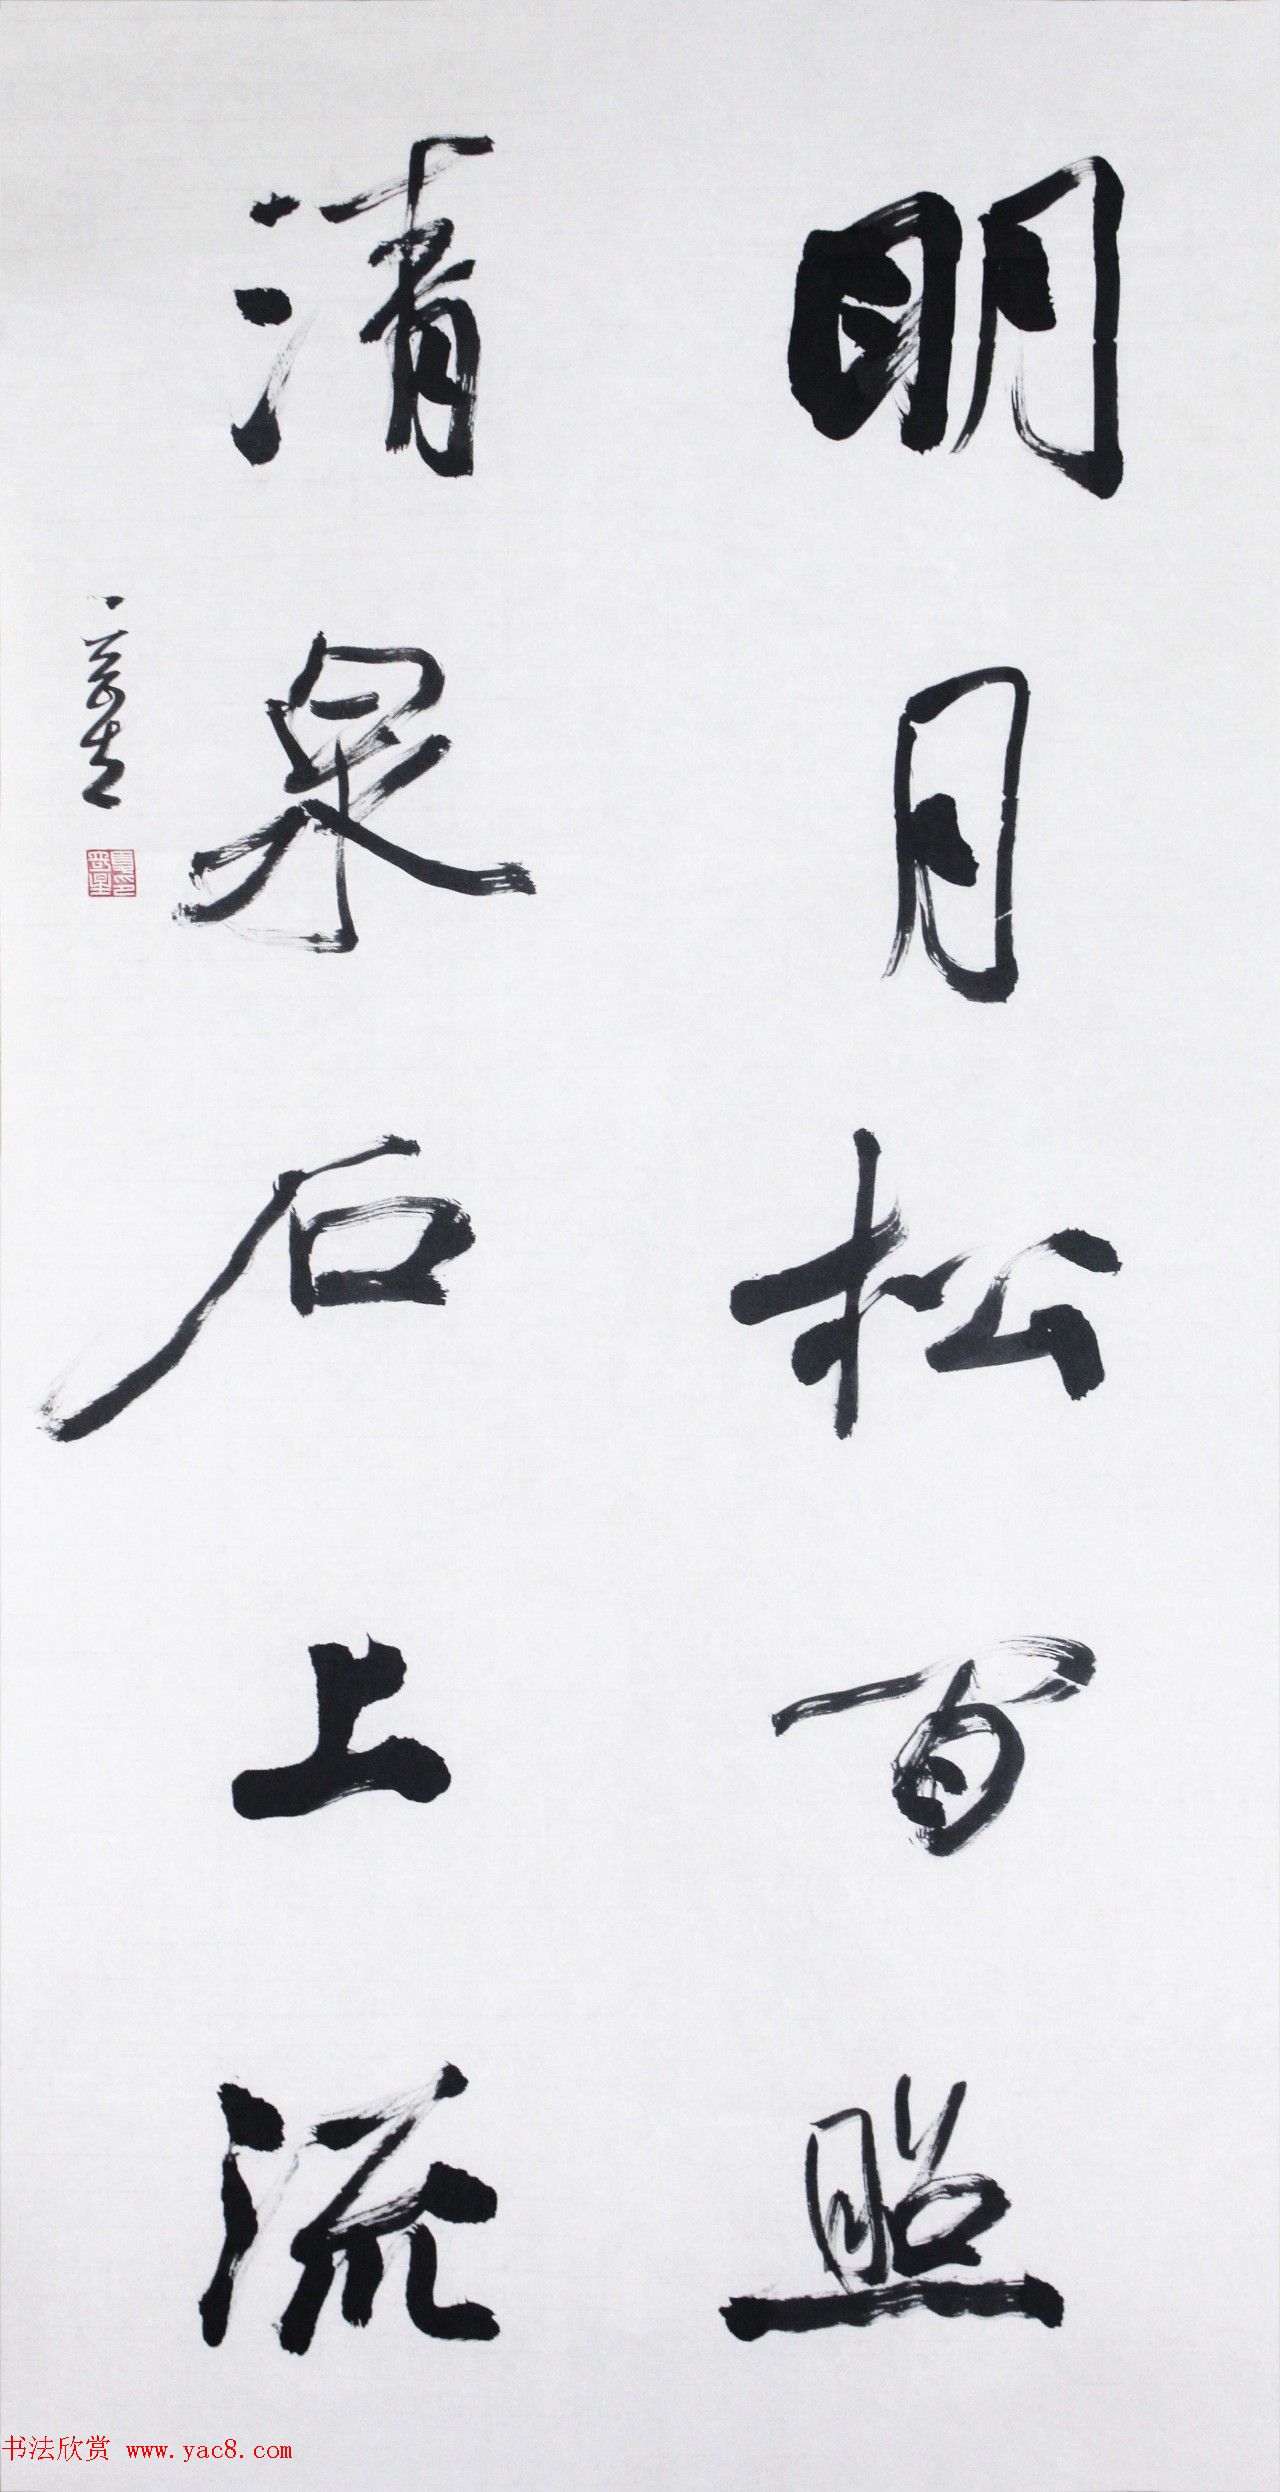 明月松间照
清泉石上流
书法欣赏 www.yac8.com